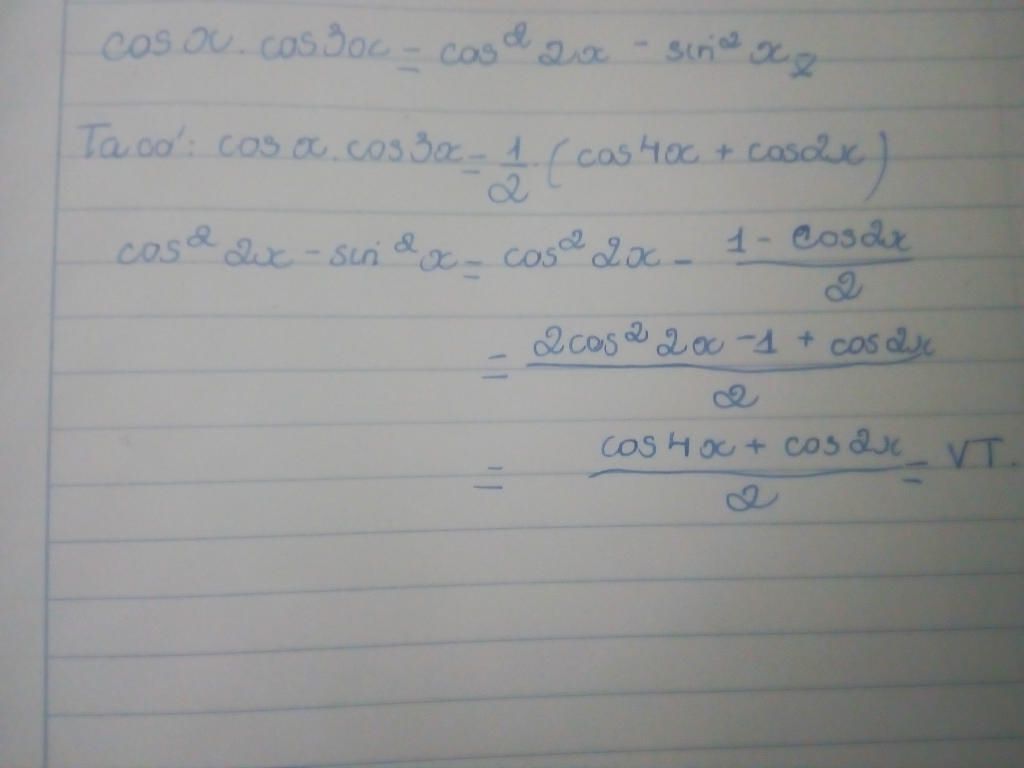 cos x . cos3x = cos² 2x - sin² x
Ta có: cos x . cos3x = 1/2 . (cos4x + cos2x)
cos² 2x - sin² x = cos² 2x - (1 - cos2x)/2
= (2cos² 2x - 1 + cos2x)/2
= (cos4x + cos2x)/2 = VT.